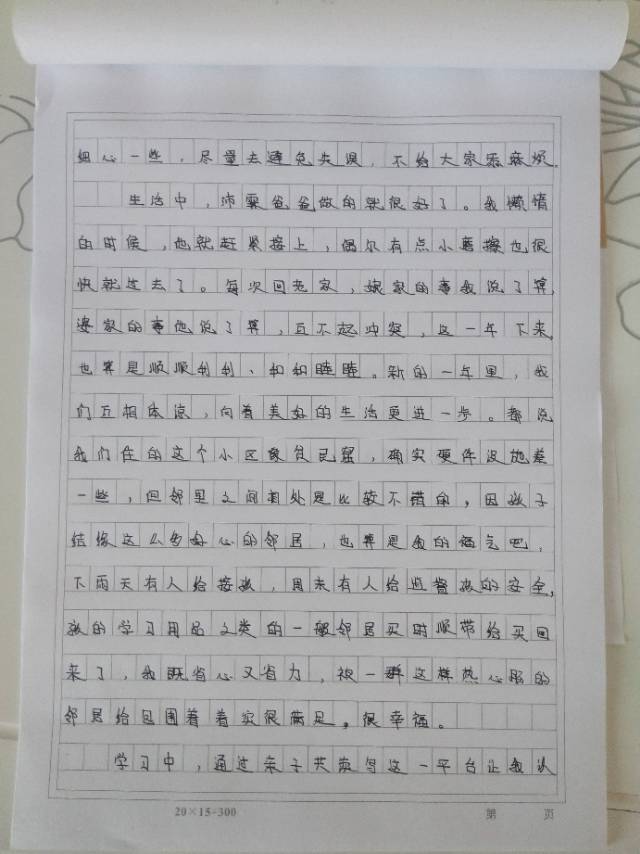 细心一些，尽量去避免失误，不给大家添麻烦。
生活中，沛霖爸爸做的就很好了。我懒惰
的时候，他就赶紧接上，偶尔有点小磨擦也很
快就过去了。每次回老家，娘家的事我说了算，
婆家的事他说了算，互不起冲突，这一年下来，
也算是顺顺利利、和和睦睦。新的一年里，我
们互相体谅，向着美好的生活更进一步。都说
我们住的这个小区象贫民窟，确实硬件设施差
一些，但邻里之间相处是比较不错的，因孩子
结缘这么多好心的邻居，也算是我的福气吧，
下雨天有人给接孩，周末有人给监督孩的安全，
孩的学习用品之类的一般邻居买时顺带给买回
来了，我既省心又省力，被一群这样热心肠的
邻居给包围着着实很满足，很幸福。
学习中，通过亲子共读写这一平台让我认
20×15=300
第 页